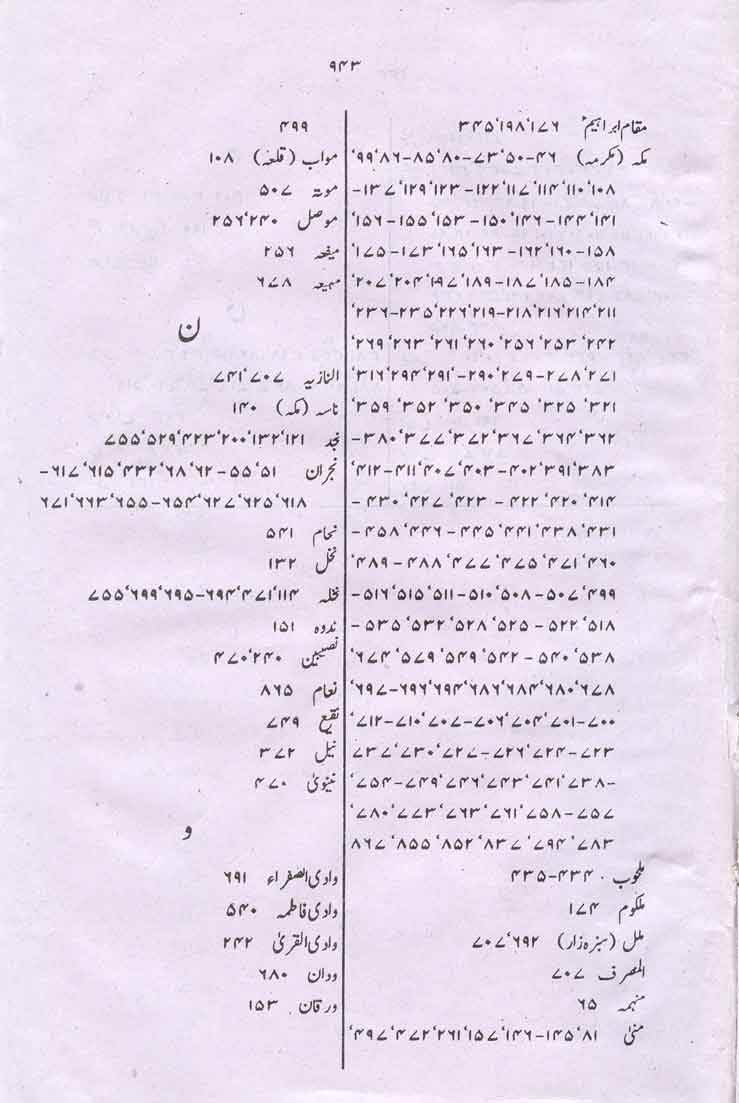 ۹۴۳
مقام ابراہیمؑ ۱۷۶، ۱۹۸، ۳۴۵
مکہ (مکرمہ) ۴۶-۵۰، ۷۳-۸۰، ۸۵-۸۶، ۹۹،
۱۰۸، ۱۱۰، ۱۱۴، ۱۱۷، ۱۲۲-۱۲۳، ۱۲۹، ۱۳۷-
۱۴۱، ۱۴۴-۱۴۶، ۱۵۰-۱۵۳، ۱۵۵-۱۵۶،
۱۵۸-۱۶۰، ۱۶۲-۱۶۳، ۱۶۵، ۱۷۳-۱۷۵،
۱۸۴-۱۸۵، ۱۸۷-۱۸۹، ۱۹۷، ۲۰۴، ۲۰۷،
۲۱۱، ۲۱۴، ۲۱۶، ۲۱۸-۲۱۹، ۲۲۶، ۲۳۵-۲۳۶،
۲۴۲، ۲۵۳، ۲۵۶، ۲۶۰، ۲۶۱، ۲۶۳، ۲۶۹،
۲۷۱، ۲۷۸-۲۷۹، ۲۹۰-۲۹۱، ۲۹۴، ۳۱۶،
۳۲۱، ۳۲۵، ۳۴۵، ۳۵۰، ۳۵۲، ۳۵۹،
۳۶۲، ۳۶۴، ۳۶۷، ۳۷۲، ۳۷۷، ۳۸۰-
۳۸۳، ۳۹۱، ۴۰۲-۴۰۳، ۴۰۷، ۴۱۱-۴۱۲،
۴۱۴، ۴۲۰، ۴۲۲-۴۲۳، ۴۲۷، ۴۳۰-
۴۳۱، ۴۳۸، ۴۴۱، ۴۴۵-۴۴۶، ۴۵۸-
۴۶۰، ۴۷۱، ۴۷۵، ۴۷۷، ۴۸۸-۴۸۹،
۴۹۹، ۵۰۷-۵۰۸، ۵۱۰-۵۱۱، ۵۱۵، ۵۱۶-
۵۱۸، ۵۲۲-۵۲۵، ۵۲۸، ۵۳۲، ۵۳۵-
۵۳۸، ۵۴۰-۵۴۲، ۵۴۹، ۵۷۹، ۶۷۴،
۶۷۸، ۶۸۰، ۶۸۴، ۶۸۶، ۶۹۴، ۶۹۶-۶۹۷،
۷۰۰-۷۰۱، ۷۰۴، ۷۰۶-۷۰۷، ۷۱۰-۷۱۲،
۷۲۳-۷۲۴، ۷۲۶-۷۲۷، ۷۳۰، ۷۳۷
-۷۳۸، ۷۴۱، ۷۴۳، ۷۴۶، ۷۴۹-۷۵۴،
۷۵۷-۷۵۸، ۷۶۱، ۷۶۳، ۷۷۳، ۷۸۰،
۷۸۳، ۷۹۴، ۸۳۷، ۸۵۲، ۸۵۵، ۸۶۷
ملحوب ۴۳۴-۴۳۵
ملکوم ۱۷۴
ملل (سبزہ زار) ۶۹۲، ۷۰۷
المصرف ۷۰۷
منہمہ ۶۵
منیٰ ۸۱، ۱۴۵-۱۴۶، ۱۵۷، ۲۶۱، ۴۷۲، ۴۹۷،
۴۹۹
مواب (قلعہ) ۱۰۸
موتہ ۵۰۷
موصل ۲۴۰، ۲۵۶
میفحہ ۲۵۶
مہیعہ ۶۷۸
ن
النازیہ ۷۰۷، ۷۴۱
ناسہ (مکہ) ۱۴۰
نجد ۱۲۱، ۱۳۲، ۲۰۰، ۴۲۳، ۵۲۹، ۷۵۵
نجران ۵۱، ۵۵-۶۲، ۶۸، ۴۳۲، ۶۱۵، ۶۱۷-
۶۱۸، ۶۲۵، ۶۲۷، ۶۵۴-۶۵۵، ۶۶۳، ۶۷۱
نحام ۵۴۱
نخل ۱۳۲
نخلہ ۱۱۴، ۴۷۱، ۶۹۴-۶۹۵، ۶۹۹، ۷۵۵
ندوہ ۱۵۱
نصیبین ۲۴۰، ۴۷۰
نعام ۸۶۵
نقیع ۷۴۹
نیل ۳۷۲
نینویٰ ۴۷۰
و
وادی الصفراء ۶۹۱
وادی فاطمہ ۵۴۰
وادی القریٰ ۲۴۲
ودان ۶۸۰
ورقان ۱۵۳